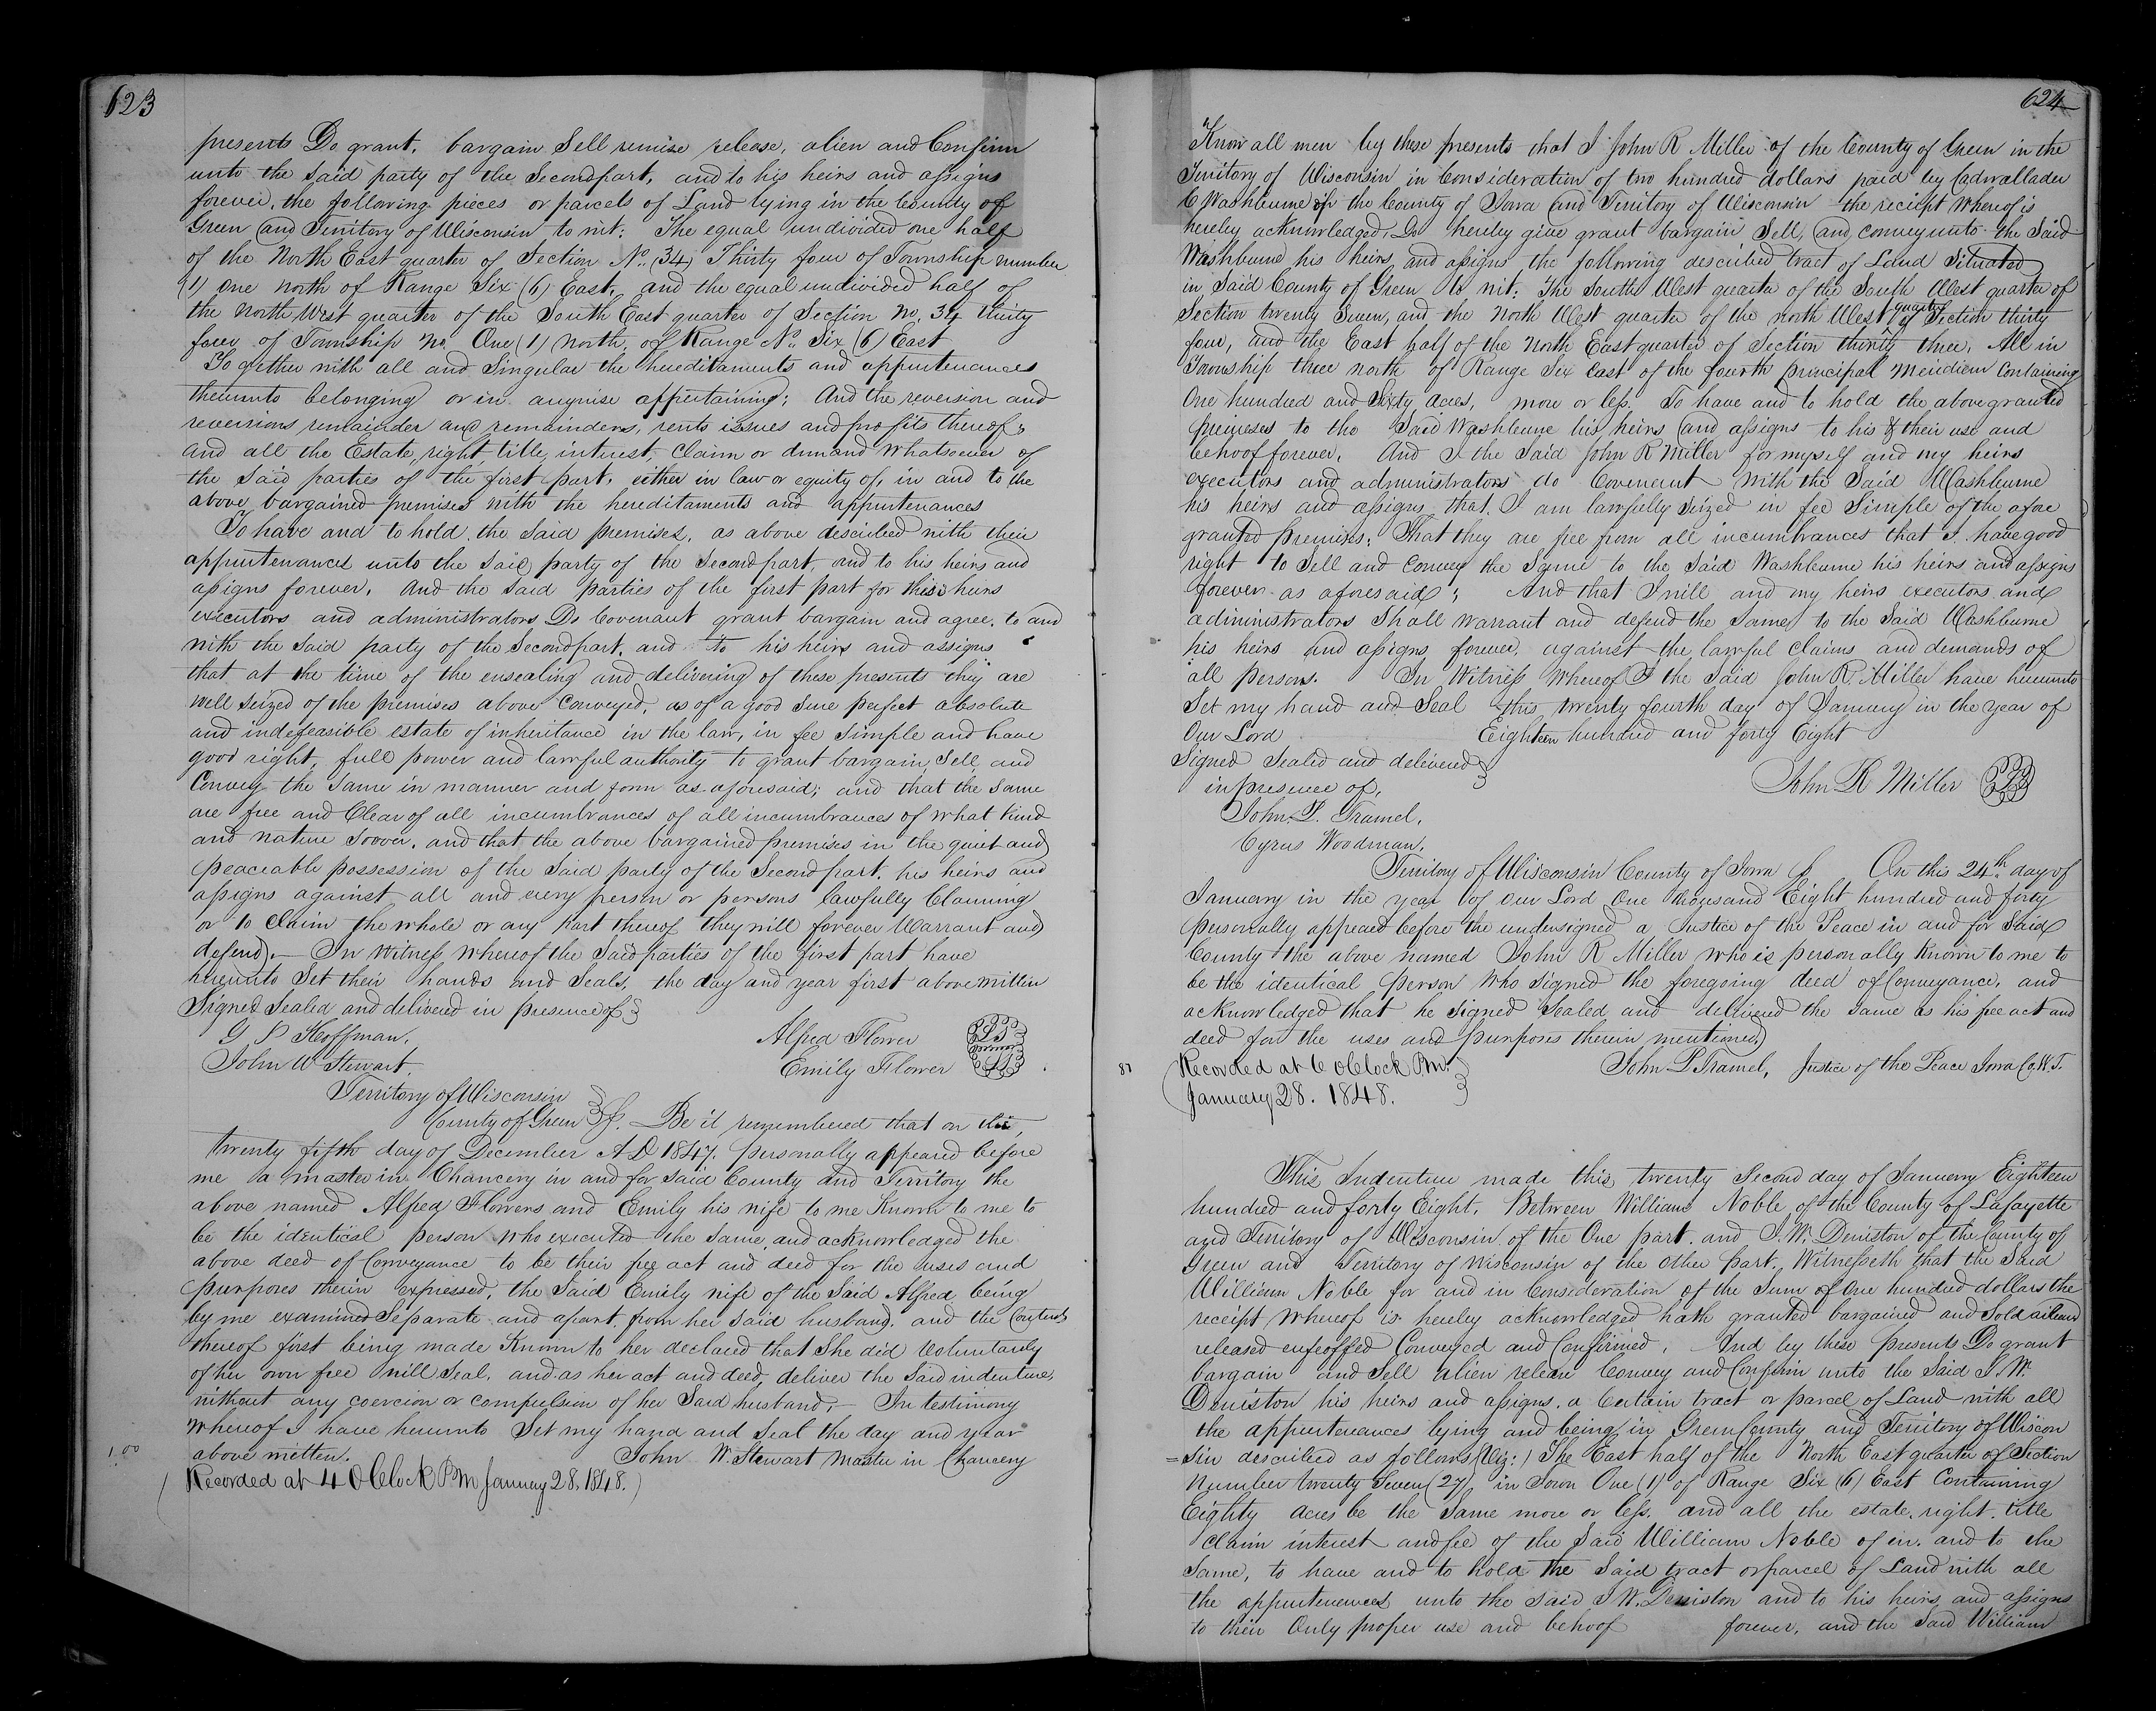 623
presents Do grant, bargain Sell remise release, alien and Confirm
unto the Said party of the Second part, and to his heirs and assigns
forever, the following pieces or parcels of Land lying in the County of
Green and Territory of Wisconsin to wit: The equal undivided one half
of the North East quarter of Section No. (34) Thirty four of Township number
(1) one North of Range Six (6) East, and the equal undivided half of
the North West quarter of the South East quarter of Section No. 34 thirty
four of Township No. One (1) North, of Range No. Six (6) East
Together with all and Singular the hereditaments and appurtenances
thereunto belonging or in anywise appertaining: And the reversion and
reversions remainder and remainders, rents issues and profits thereof;
and all the Estate, right, title, interest, Claim or demand whatsoever of
the Said parties of the first part, either in law or equity of, in and to the
above bargained premises with the hereditaments and appurtenances
To have and to hold the Said premises, as above described with their
appurtenances unto the Said party of the Second part, and to his heirs and
assigns forever. And the Said parties of the first part for this heirs
executors and administrators Do Covenant grant bargain and agree, to and
with the Said party of the Second part, and to his heirs and assigns
that at the time of the ensealing and delivering of these presents they are
well Seized of the premises above Conveyed, as of a good Sure perfect absolute
and indefeasible estate of inheritance in the law, in fee Simple and have
good right, full power and lawful authority to grant bargain, Sell and
Convey the Same in manner and form as aforesaid; and that the Same
are free and Clear of all incumbrances of all incumbrances of what kind
and nature soever, and that the above bargained premises in the quiet and
peaceable possession of the Said party of the Second part, his heirs and
assigns against all and every person or persons lawfully Claiming
or to Claim the whole or any part thereof they will forever Warrant and
defend.— In Witness whereof the Said parties of the first part have
hereunto Set their hands and Seals, the day and year first above written
Signed Sealed and delivered in presence of
G P Hoffman, Alfred Flower
John W Stewart. Emily Flower
Territory of Wisconsin
County of Green Ss. Be it remembered that on this,
twenty fifth day of December A D 1847, personally appeared before
me a master in Chancery in and for Said County and Territory the
above named Alfred Flowers and Emily his wife to me Known to me to
be the identical person who executed the Same, and acknowledged the
above deed of Conveyance to be their free act and deed for the uses and
purposes therein expressed, the Said Emily wife of the Said Alfred being
by me examined Separate and apart, from her Said husband, and the Contents
thereof first being made Known to her declared that She did Voluntarily
of her own free will Seal, and as her act and deed, deliver the Said indenture,
without any coercion or compulsion of her Said husband.— In testimony
whereof I have hereunto Set my hand and Seal the day and year
1.00 above written. John W. Stewart Master in Chancery
(Recorded at 4 O Clock P.M January 28, 1848.)
624
Know all men by these presents that I John R Miller of the County of Green in the
Territory of Wisconsin in Consideration of two hundred dollars paid by Cadwallader
C Washburne of the County of Iowa and Territory of Wisconsin the reciept Whereof is
hereby acknowledged, Do hereby give grant bargain Sell, and convey unto the Said
Washburne his heirs, and assigns the following described tract of Land Situated
in Said County of Green to wit: The South West quarter of the South West quarter of
Section twenty Seven, and the North West quarter of the north West quarter of Section thirty
four, and the East half of the North East quarter of Section thirty three, All in
Township three north of Range Six East of the fourth principal Meridien Containing
One hundred and Sixty Acres, more or less, To have and to hold the above granted
premises to the Said Washburne his heirs and assigns to his & their use and
behoof forever. And I the Said John R Miller for myself and my heirs
executors and administrators do Covenant With the Said Washburne
his heirs and assigns that, I am lawfully Seized in fee Simple of the afore
granted premises: That they are free from all incumbrances that I have good
right to Sell and Convey the Same to the Said Washburne his heirs and assigns
forever as aforesaid; And that I will and my heirs executors and
administrators Shall Warrant and defend the Same to the Said Washburne
his heirs and assigns forever, against the lawful Claims and demands of
all persons. In Witness Whereof I the Said John R. Miller have hereunto
Set my hand and Seal this twenty fourth day of January in the year of
Our Lord Eighteen hundred and forty Eight
Signed Sealed and delivered
in presence of, John R Miller
John P. Tramel,
Cyrus Woodman.
Territory of Wisconsin County of Iowa Ss On this 24th day of
January in the year of our Lord One thousand Eight hundred and forty
personally appeared before the undersigned a Justice of the Peace in and for Said
County the above named John R Miller who is personally Known to me to
be the identical person who signed the foregoing deed of Conveyance, and
acknowledged that he Signed Sealed and delivered the Same as his free act and
deed for the uses and purposes therein mentioned,
87 (Recorded at 6 O Clock P.M. John P Tramel, Justice of the Peace Iowa Co, W.T.
January 28. 1848.
This Indenture made this twenty Second day of January Eighteen
hundred and forty Eight, Between William Noble of the County of Lafayette
and Territory of Wisconsin of the One part, and J. W. Deniston of the County of
Green and Territory of Wisconsin of the Other part. Witnesseth that the Said
William Noble for and in Consideration of the Sum of One hundred dollars the
receipt whereof is hereby acknowledged hath granted bargained and Sold aliend
released enfeoffed Conveyed and Confirmed. And by these presents Do grant
bargain and Sell alien release Convey and Confirm unto the Said J. W.
Deniston his heirs and assigns, a Certain tract or parcel of Land with all
the appurtenances lying and being in Green County and Territory of Wiscon
=sin described as follows (Viz:) The East half of the North East quarter of Section
Number twenty Seven (27) in Town One (1) of Range Six (6) East Containing
Eighty acres be the Same more or less. and all the estate, right, title
Claim interest and fee of the Said William Noble of in, and to the
Same, to have and to hold the Said tract or parcel of Land with all
the appurtenences unto the Said J W. Deniston and to his heirs, and assigns
to their Only proper use and behoof forever, and the Said William